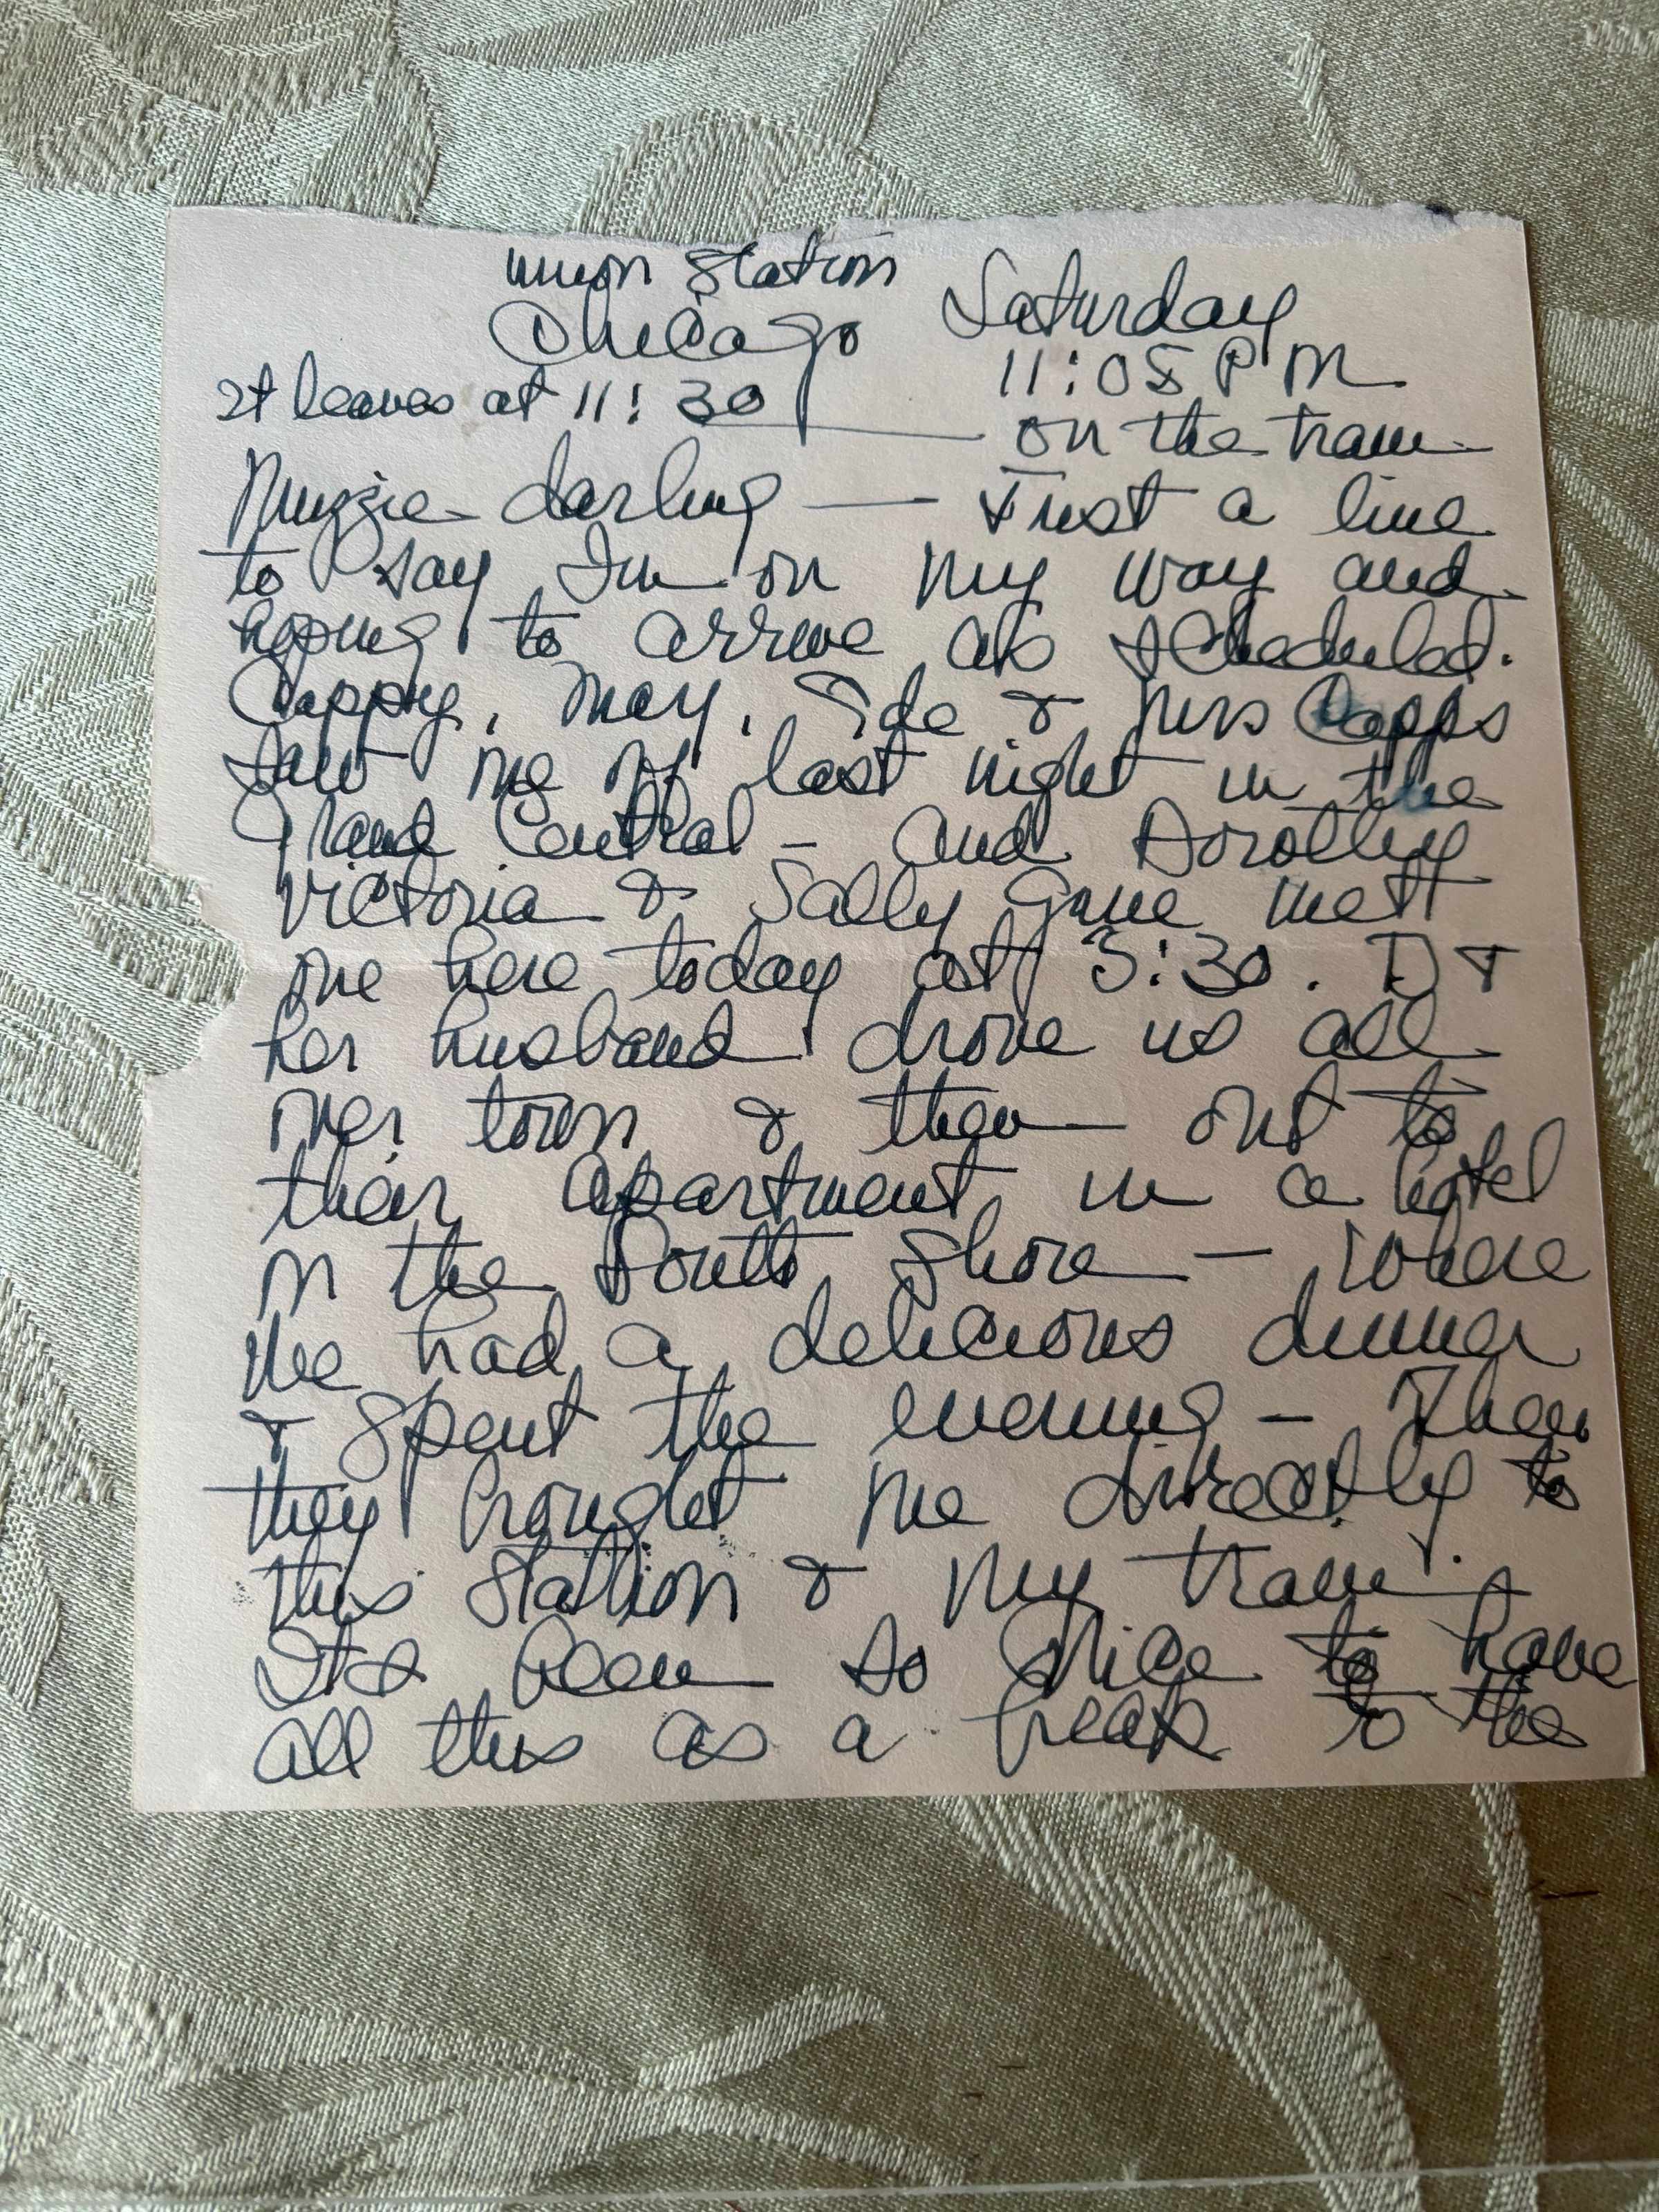 Union Station
Chicago
Saturday
11:05 PM
It leaves at 11:30 — on the train
Muzzie darling — Just a line
to say I'm on my way and
hoping to arrive as scheduled.
Cappy, May, Ide & Mrs Capps
saw me off last night in the
Grand Central - and Dorothy
Victoria & Sally Gane mett
me here today at 3:30. D &
her husband drove us all
over town & then out to
their apartment in a hotel
on the South Shore — where
we had a delicious dinner
& spent the evening - Then
they brought me directly to
this station & my train.
Its been so nice to have
all this as a break to the